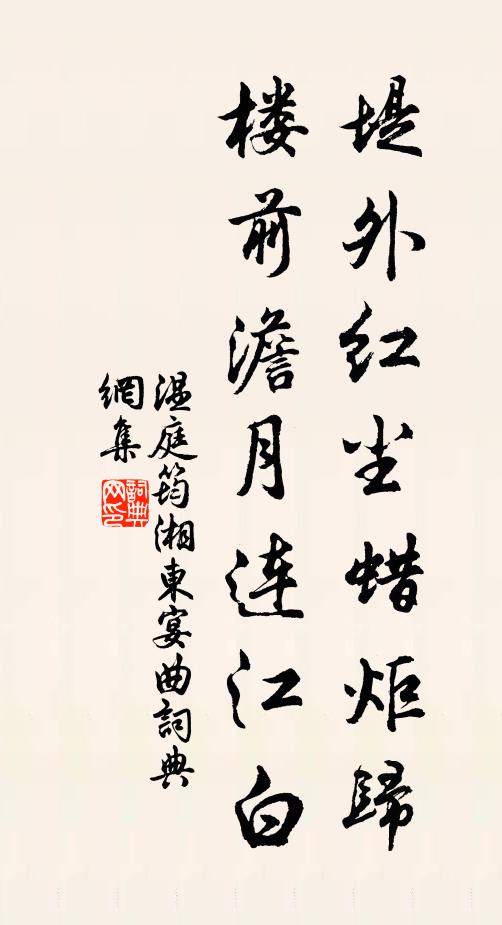 堤外红尘蜡炬歸
楼前澹月连江白
温庭筠湘東宴曲詞典
網集
詞典
网印